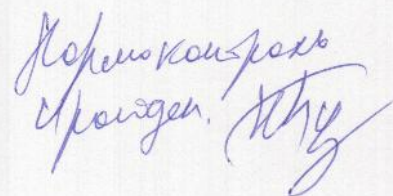 Нормоконтроль
пройден.